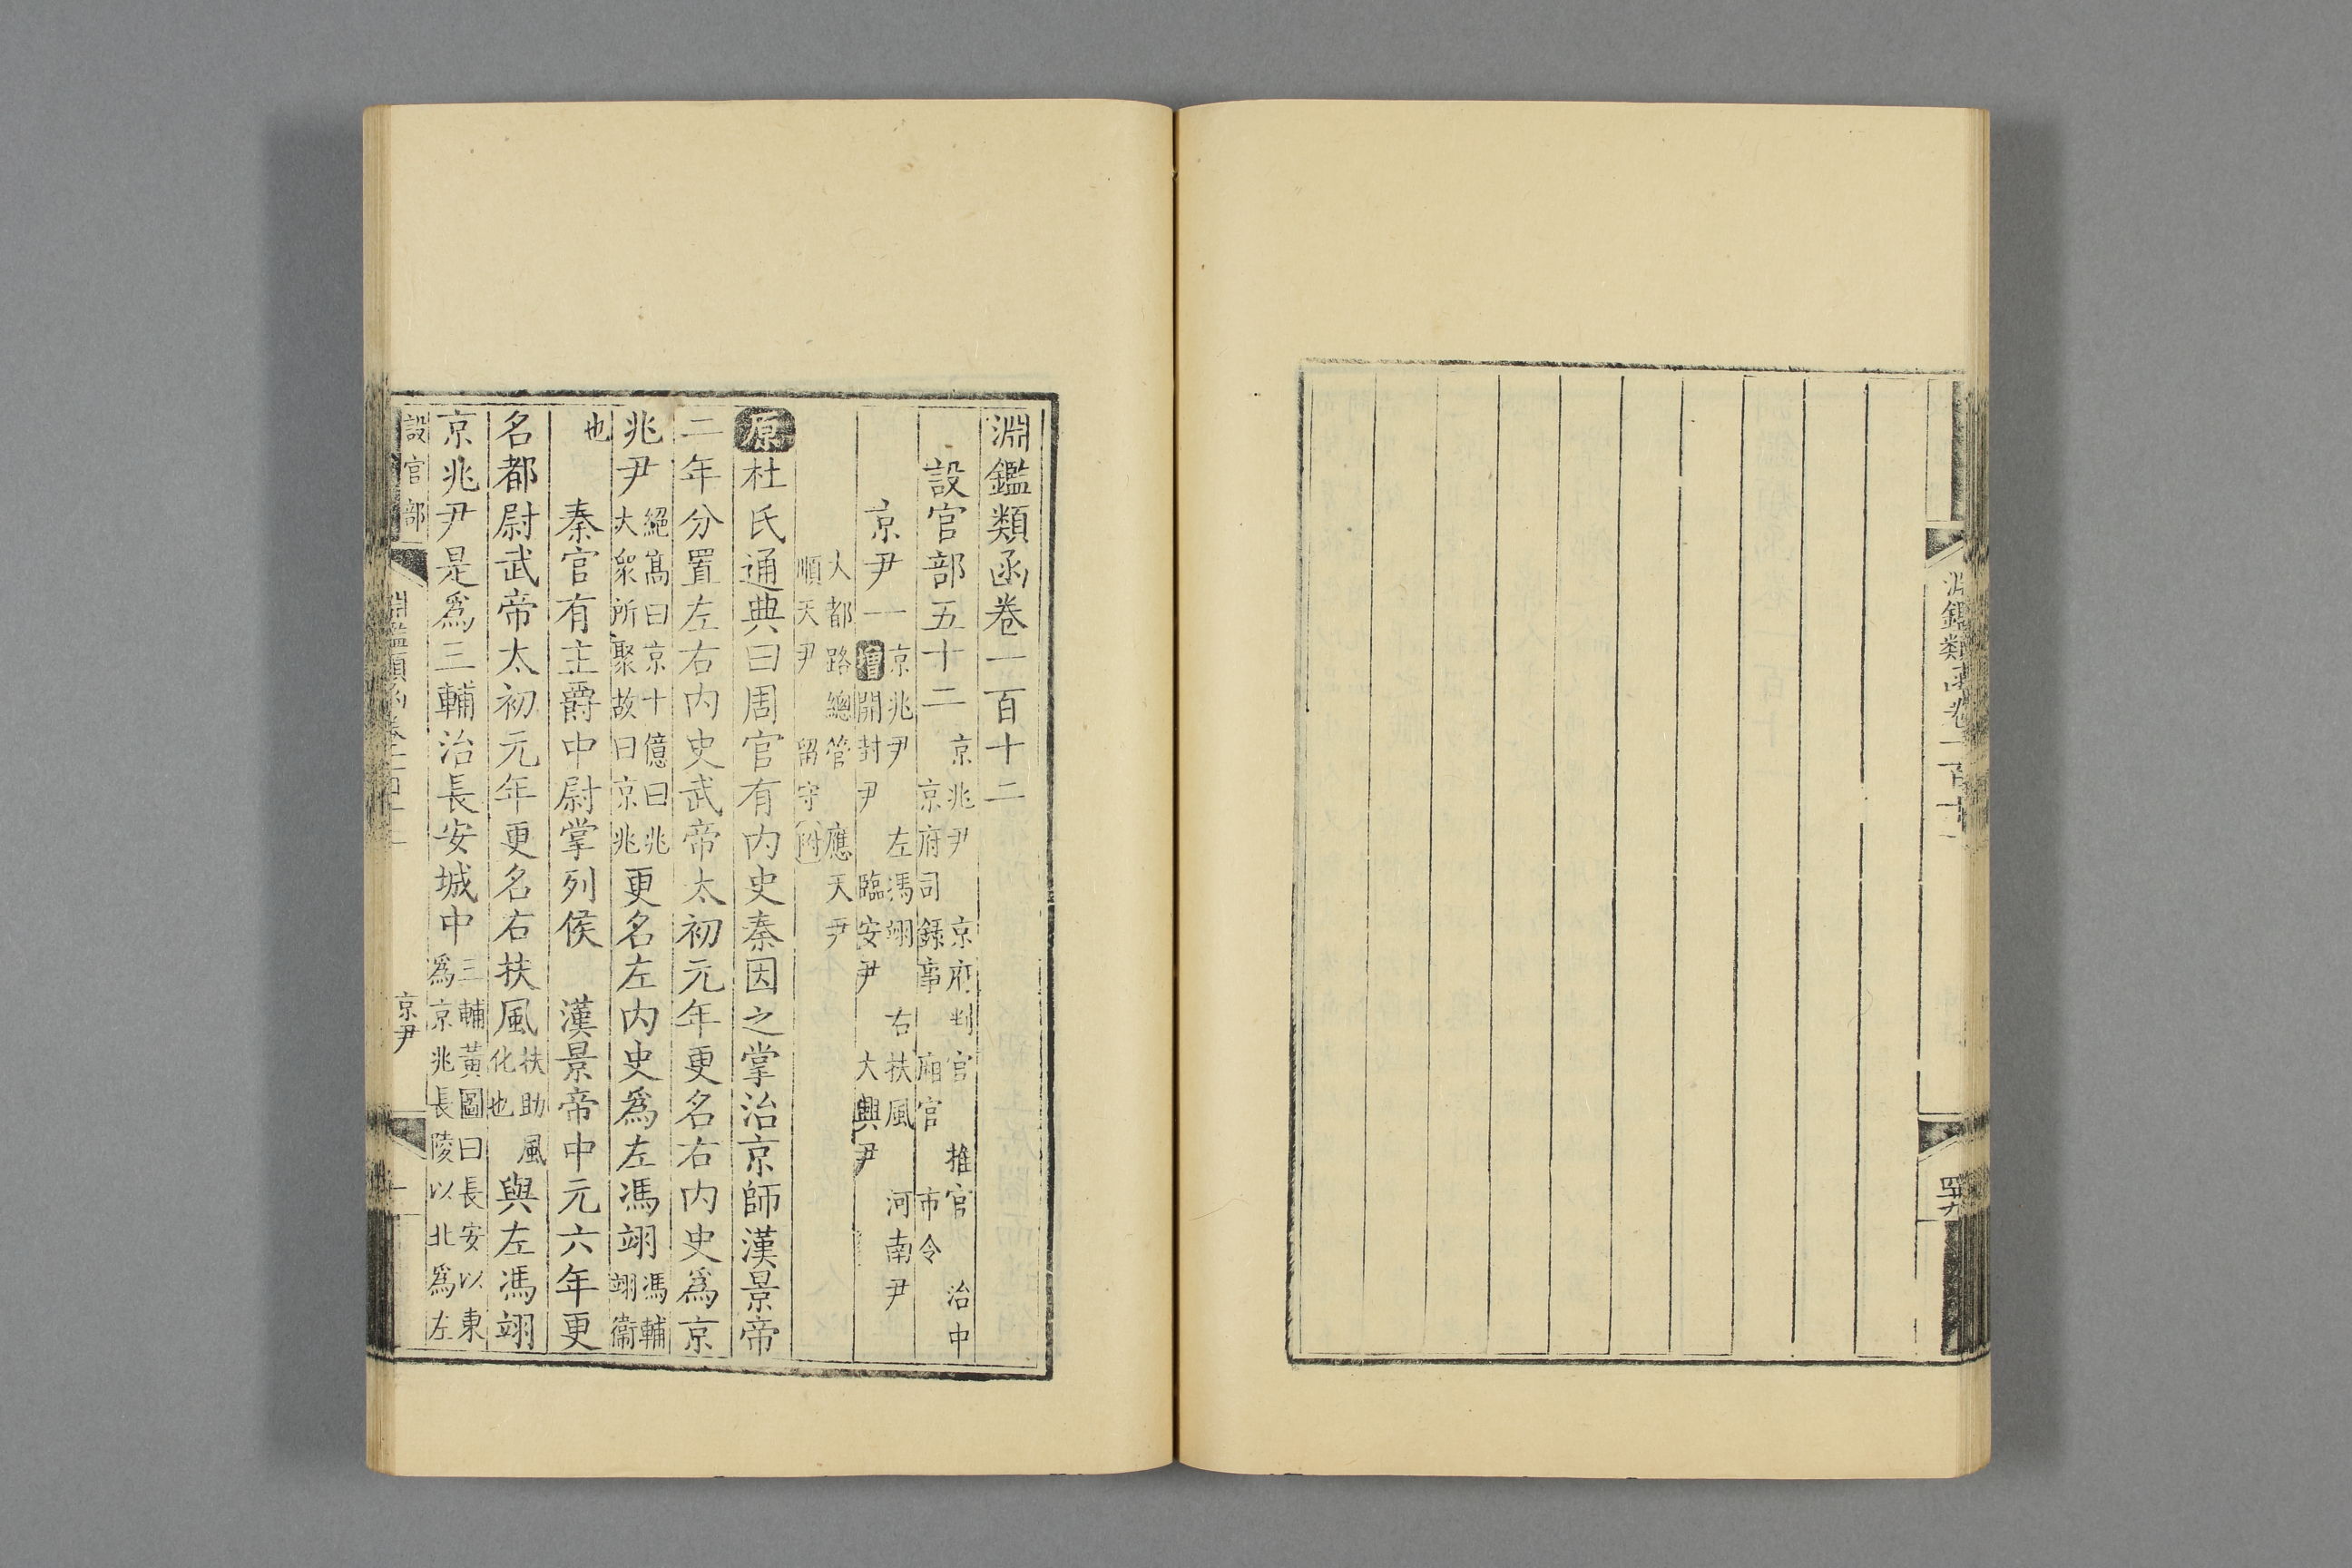 淵鑑類函卷一百十二
設官部五十二 京兆尹 京府判官 推官 治中
京府司錄事 廂官 市令
京尹一 京兆尹 左馮翊 右扶風 河南尹
增開封尹 臨安尹 大興尹
大都路總管 應天尹
順天尹 留守附
原杜氏通典曰周官有内史秦因之掌治京師漢景帝
二年分置左右内史武帝太初元年更名右内史爲京
兆尹 絕高曰京十億曰兆
大衆所聚故曰京兆 更名左内史爲左馮翊 馮輔
翊衞
也 秦官有主爵中尉掌列侯 漢景帝中元六年更
名都尉武帝太初元年更名右扶風 扶助風
化也 與左馮翊
京兆尹是爲三輔治長安城中 三輔黃圖曰長安以東
爲京兆長陵以北爲左
設官部 淵鑑類函卷一百十二 京尹 一
淵鑑類函卷一百十